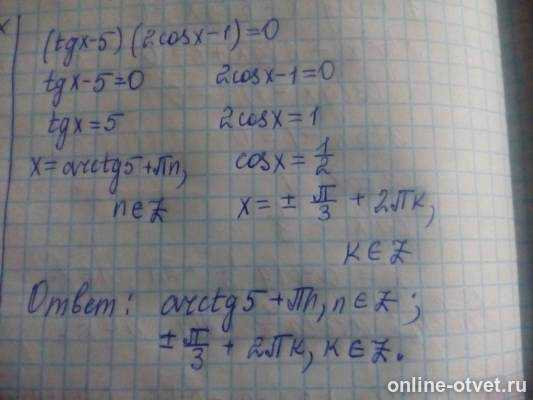 (tgx-5)(2cosx-1)=0
tgx-5=0 2cosx-1=0
tgx=5 2cosx=1
x=arctg5+πn, cosx=1/2
n∈Z x=± π/3 + 2πk,
k∈Z
Ответ: arctg5+πn, n∈Z;
± π/3 + 2πk, k∈Z.
online-otvet.ru